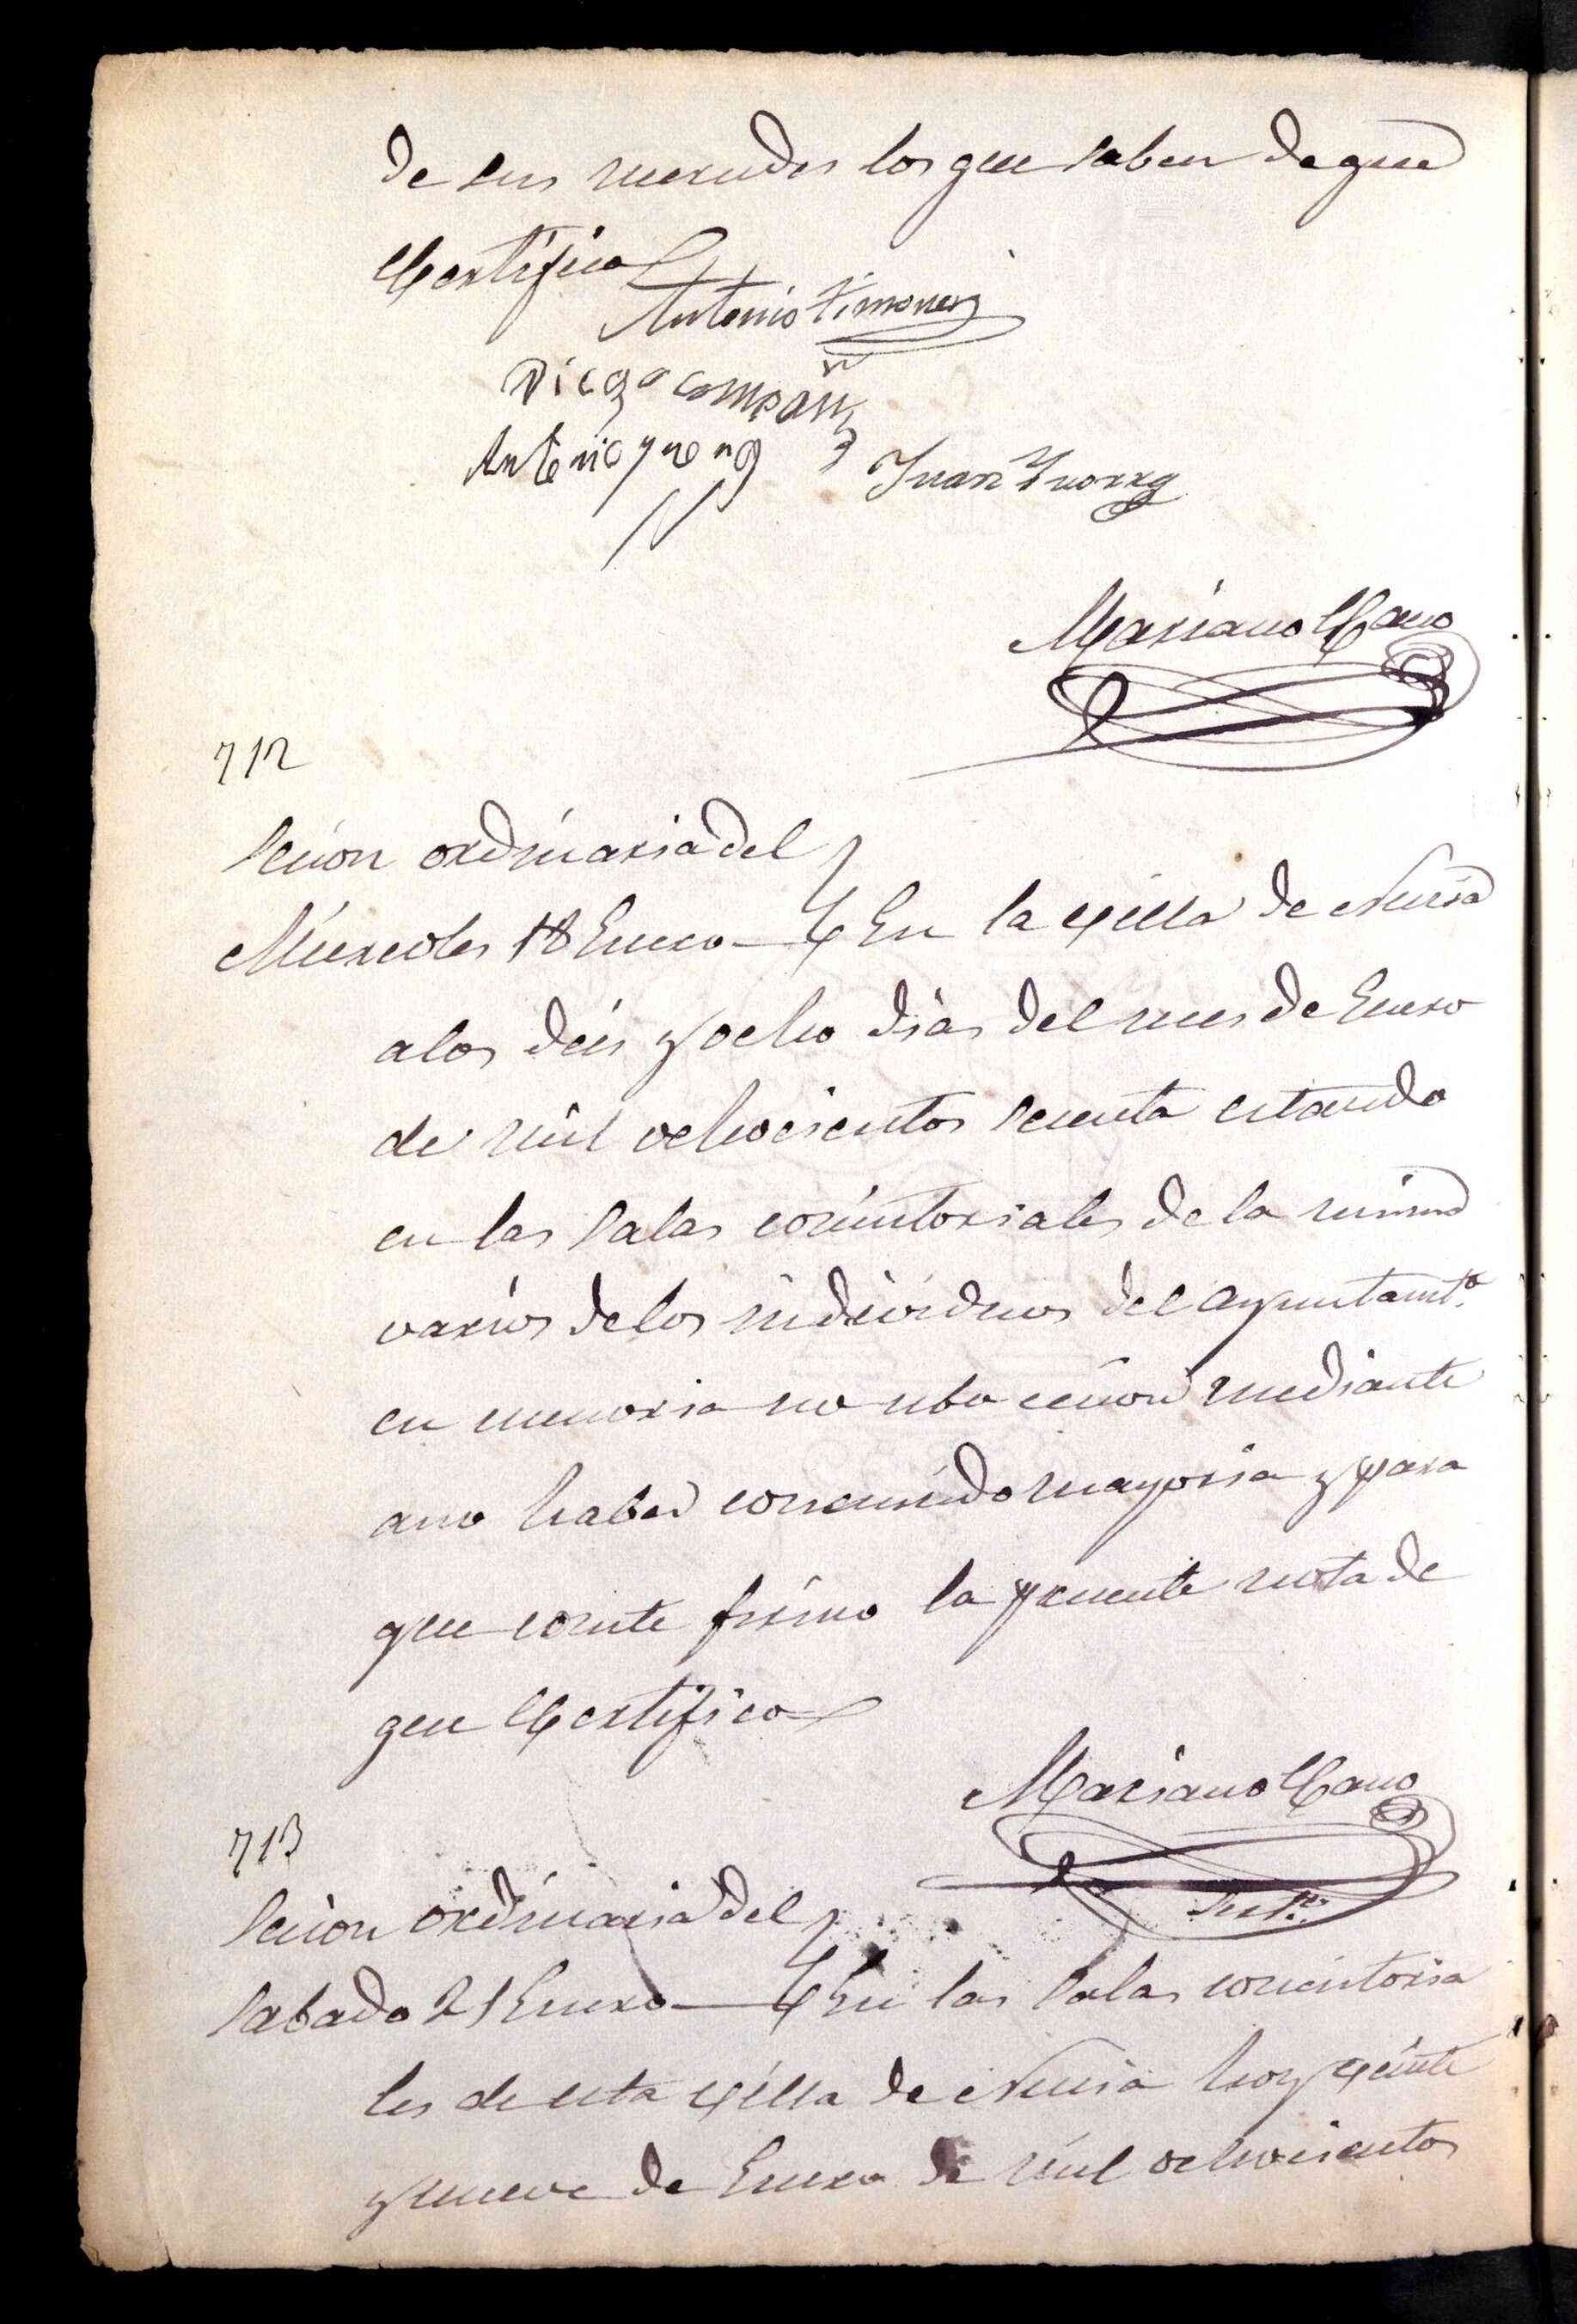 de sus mercedes los que saben de que
Certifico
Antonio Ximenez
Diego Compañ
Antonio
Juan Yvorra
Mariano Cano
712
Secion ordinaria del
Miercoles 18 Enero En la Villa de Nucia
a los dies y ocho dias del mes de Enero
de mil ochocientos secenta estando
en las Salas concistoriales de la misma
varios de los individuos del Ayuntamto.
en memoria no ubo cecion mediante
a no haber concurrido mayoria y para
que conste firmo la precente nota de
que Certifico
Mariano Cano
713
Secion ordinaria del
Sabado 21 Enero En las Salas concistoria
les de esta Villa de Nucia hoy veinte
y nueve de Enero de mil ochocientos